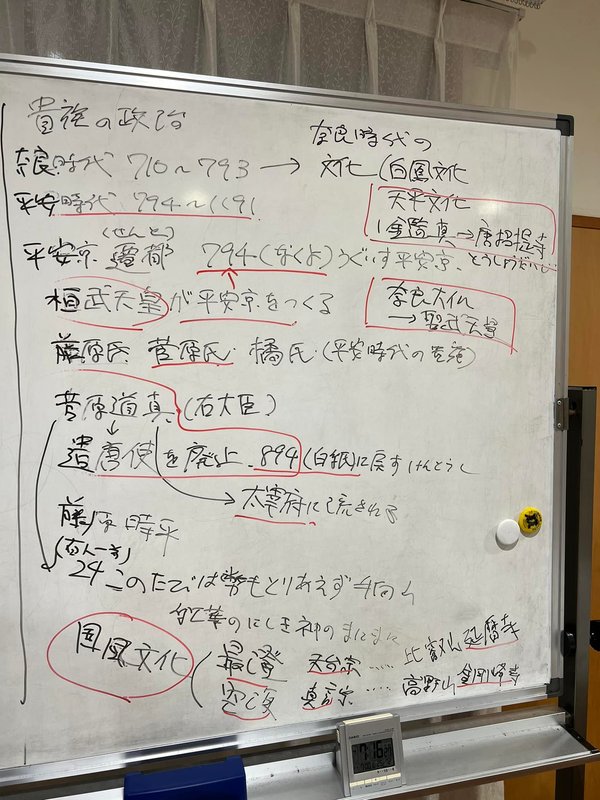 貴族の政治
奈良時代 710〜793 →
奈良時代の
文化(白鳳文化
天平文化
鑑真→唐招提寺
とうしょうだいじ
平安時代 794〜1191
(せんと)
平安京 遷都 794(なくよ)うぐいす平安京、
桓武天皇が平安京をつくる
奈良大仏
→聖武天皇
藤原氏 菅原氏 橘氏(平安時代の貴族)
菅原道真(右大臣)
↓
遣唐使を廃止、894(白紙)に戻す けんとうし
→太宰府に流される
藤原時平
(百人一首)
24 このたびは幣もとりあえず手向山
紅葉のにしき神のまにまに
国風文化
最澄 天台宗 …… 比叡山延暦寺
空海 真言宗 …… 高野山金剛峰寺
CASIO
7:16